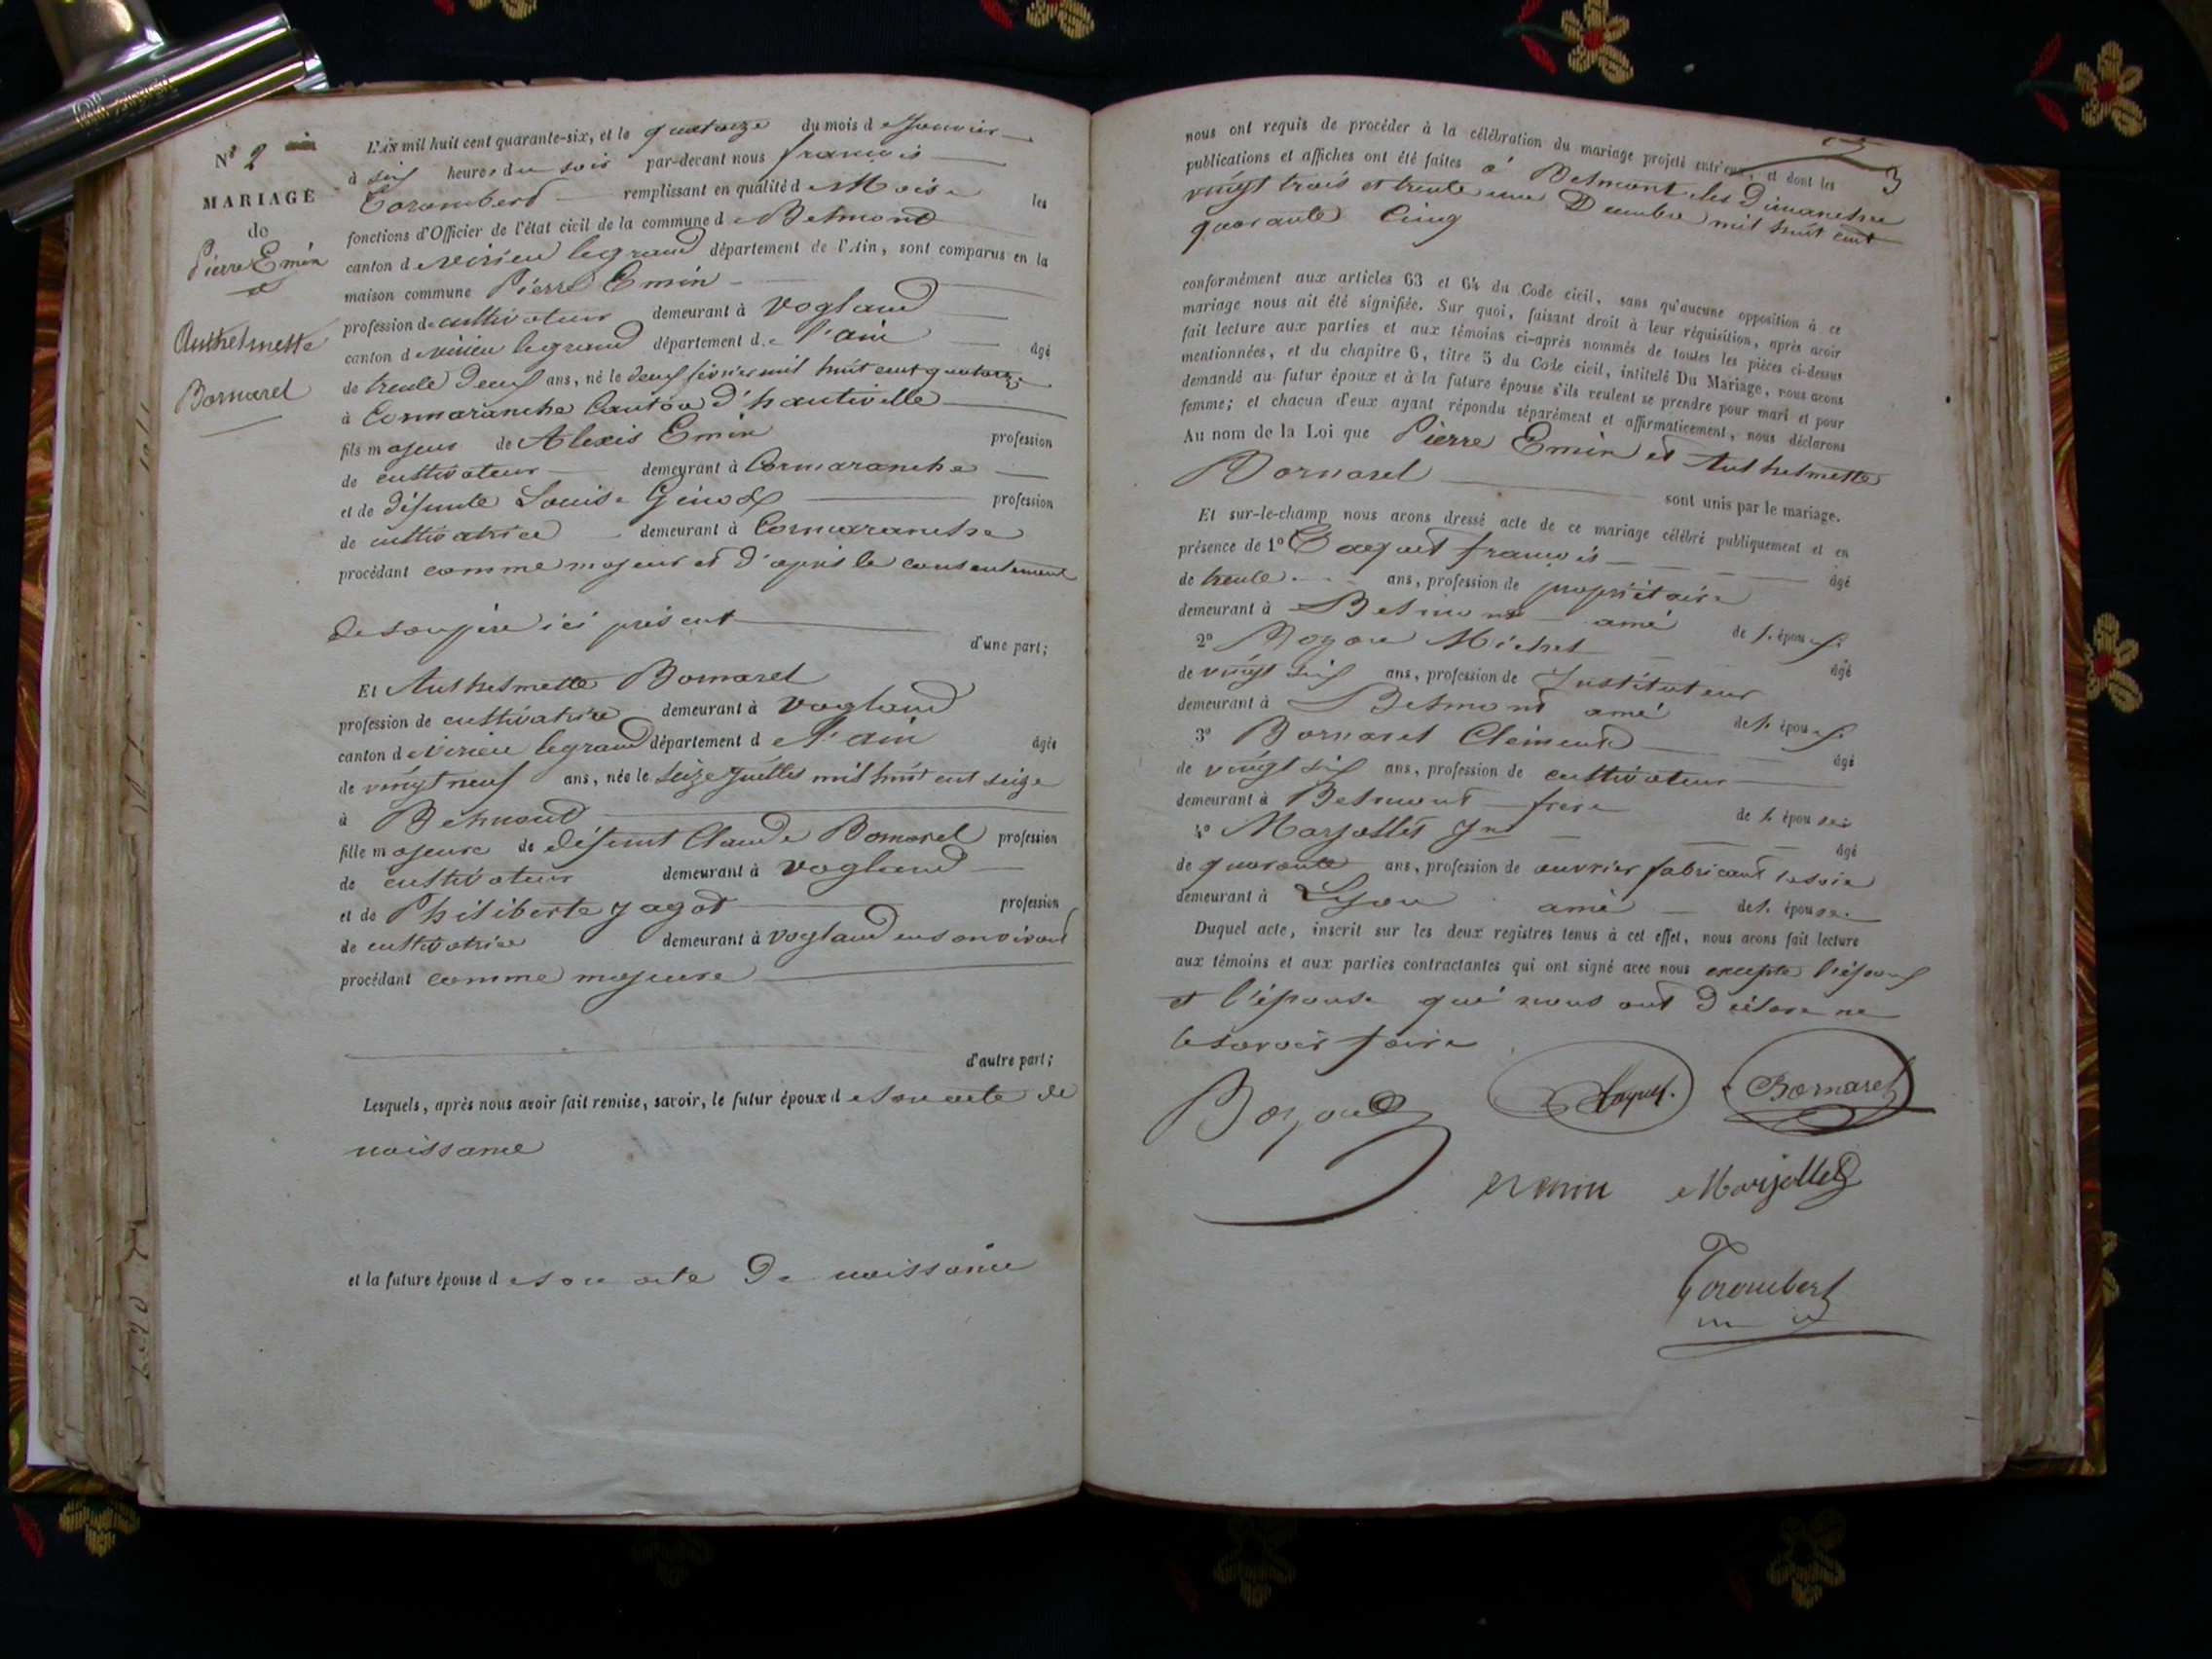 N° 2
MARIAGE
de
Pierre Emin
et
Anthelmette
Bornarel
L'AN mil huit cent quarante-six, et le quatorze du mois de Janvier
à six heures du soir par-devant nous francois
Corombert remplissant en qualité de Maire les
fonctions d'Officier de l'état civil de la commune de Belmont
canton de virieu legrand département de l'Ain, sont comparus en la
maison commune Pierre Emin
profession de cultivateur demeurant à vogland
canton de virieu legrand département de l'ain âgé
de trente deux ans, né le deux février mil huit cent quatorze
à Cormaranche Canton d'hauteville
fils majeur de Alexis Emin profession
de cultivateur demeurant à Cormaranche
et de défunte Louise Ginod profession
de cultivatrice demeurant à Cormaranche
procédant comme majeur et d'après le consentement
de son père ici présent
d'une part;
Et Anthelmette Bornarel
profession de cultivatrice demeurant à vogland
canton de virieu legrand département de l'ain âgée
de vingt neuf ans, née le seize Juillet mil huit cent seize
à Belmont
fille majeure de défunt Claude Bornarel profession
de cultivateur demeurant à vogland
et de Philiberte Jagot profession
de cultivatrice demeurant à vogland en son vivant
procédant comme majeure
d'autre part;
Lesquels, après nous avoir fait remise, savoir, le futur époux de son acte de
naissance
et la future épouse de son acte de naissance
3
nous ont requis de procéder à la célébration du mariage projeté entr'eux, et dont les
publications et affiches ont été faites à Belmont les Dimanche
vingt trois et trente une Décembre mil huit cent
quarante Cinq
conformément aux articles 63 et 64 du Code civil, sans qu'aucune opposition à ce
mariage nous ait été signifiée. Sur quoi, faisant droit à leur réquisition, après avoir
fait lecture aux parties et aux témoins ci-après nommés de toutes les pièces ci-dessus
mentionnées, et du chapitre 6, titre 5 du Code civil, intitulé Du Mariage, nous avons
demandé au futur époux et à la future épouse s'ils veulent se prendre pour mari et pour
femme; et chacun d'eux ayant répondu séparément et affirmativement, nous déclarons
Au nom de la Loi que Pierre Emin et Anthelmette
Bornarel sont unis par le mariage.
Et sur-le-champ nous avons dressé acte de ce mariage célébré publiquement et en
présence de 1° francois âgé
de trente ans, profession de propriétaire
demeurant à Belmont amé de l. époux
2° Bozon Michel âgé
de vingt six ans, profession de Instituteur
demeurant à Belmont amé de l. époux
3° Bornarel Clément âgé
de vingt six ans, profession de cultivateur
demeurant à Belmont frère de l. épouse
4° Marjollet Jn âgé
de quarante ans, profession de ouvrier fabricant de soie
demeurant à Lyon amé de l. épouse
Duquel acte, inscrit sur les deux registres tenus à cet effet, nous avons fait lecture
aux témoins et aux parties contractantes qui ont signé avec nous excepté l'époux
et l'épouse qui nous ont déclaré ne
le savoir faire
Bozon Bornarel
emin Marjollet
Corombert